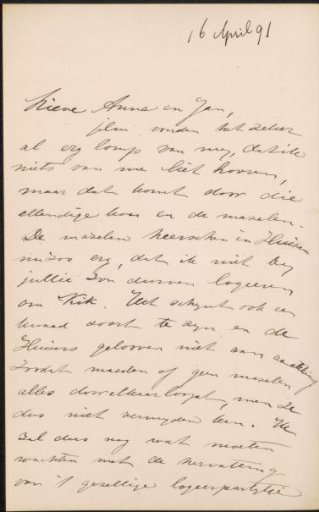 16 April 91
Lieve Anna en Jan,
vonden het zeker
al erg lomp van mij, dat ik
niets van me liet hooren,
maar dat komt door die
ellendige en de mazelen.
De mazelen heerschen in Huizen
nuzoo erg, dat ik niet bij
jullie zou durven logeeren
om Kik. Het schijnt ook een
kwaad soort te zijn en de
Huizers gelooven niet aan
zoodat mazelen of geen mazelen
alles door elkaar loopt, men ze
dus niet vermijden kan. Ik
zal dus nog wat moeten
wachten met de hervatting
van 't gezellige logeerpartijtje